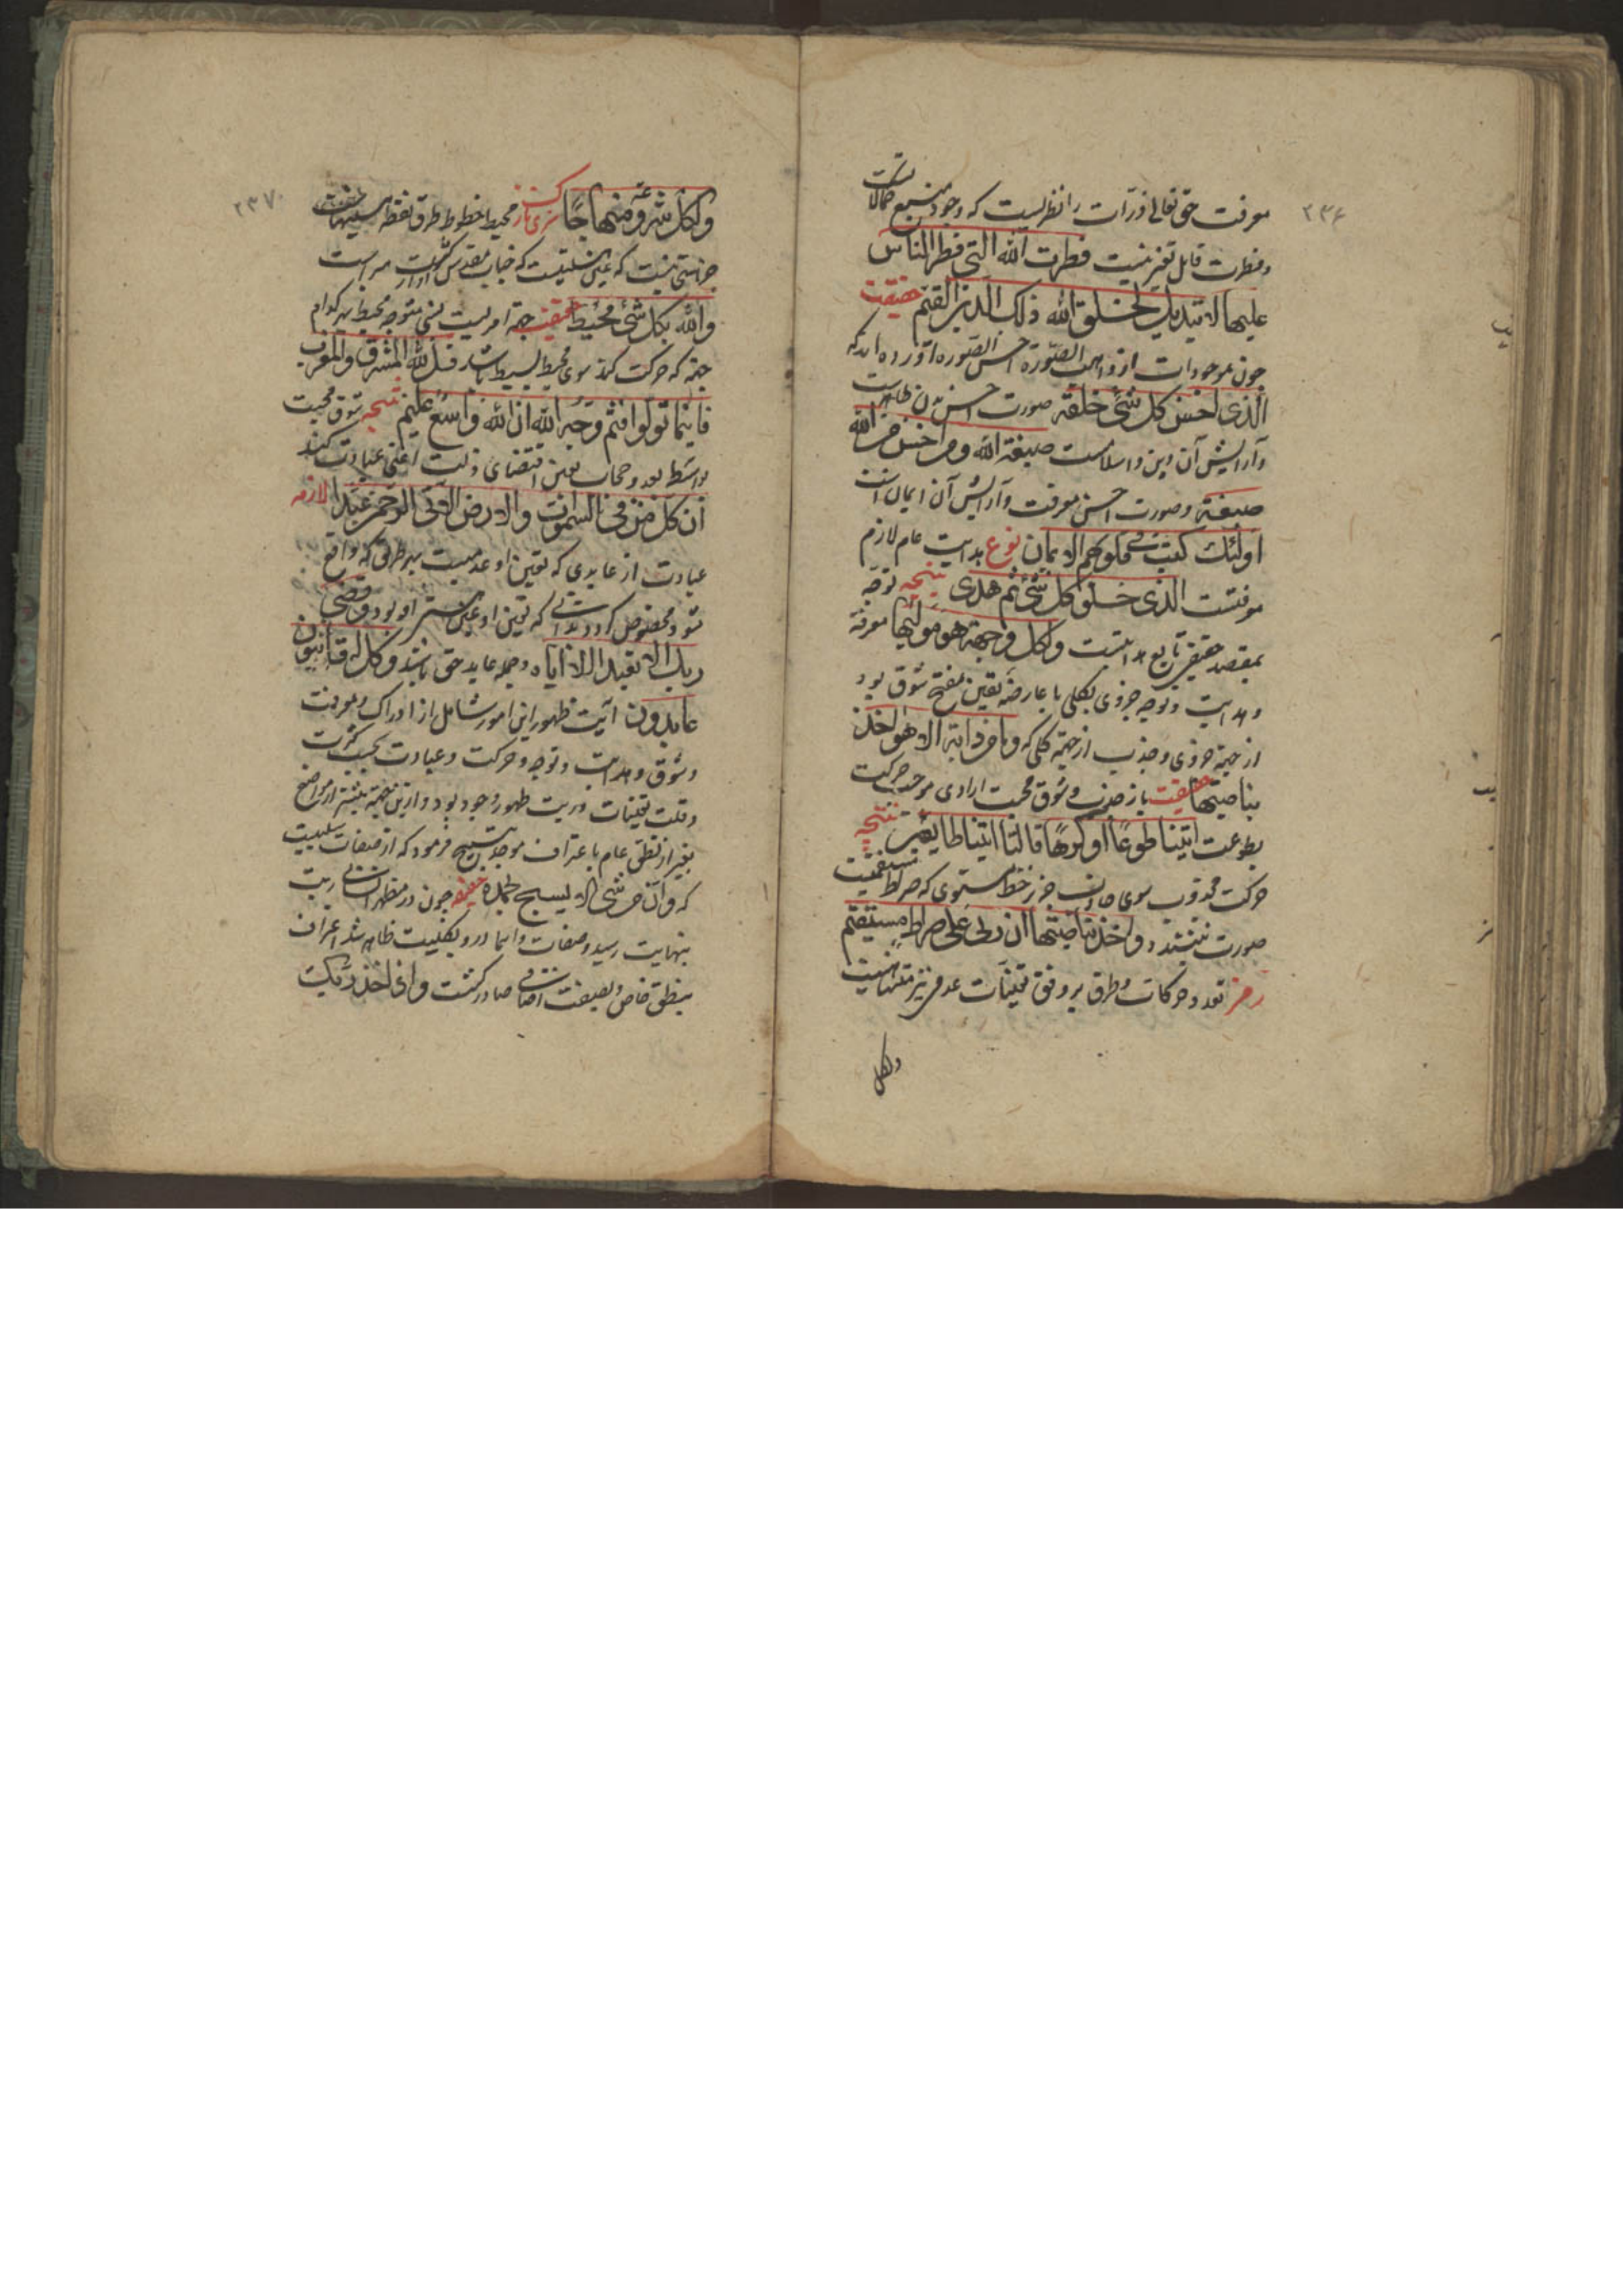 ۲۳۶
معرفت حق تعالی ذرات را نظریست که وجود منبع کمالاتست
وفطرت قابل تغیر نیست فطرت الله التی فطر الناس
علیها لا تبدیل لخلق الله ذلک الدین القیم حقیقت
چون موجودات از واهب الصوره احسن الصوره آورده اند که
الذی احسن کل شیء خلقه صورت احسن بدن
وآرایش آن دین واسلامست صبغة الله ومن احسن من الله
صبغة وصورت احسن معرفت وآرایش آن ایمان است
اولئک کتب فی قلوبهم الایمان نوع هدایت عام لازم
معرفتست الذی خلق کل شیء ثم هدی نتیجه توجه
بمقصد حقیقی تابع هدایتست ولکل وجهة هو مولیها معرفة
وهدایت وتوجه جزوی بکلی با عارضه تعین شوق بود
از جهة جزوی وجذب از جهة کلی که وما من دابة الا هو اخذ
بناصیتها حقیقت باز جذب وشوق محبت ارادی موجد حرکت
بطوعست ائتیا طوعا او کرها قالتا اتینا طایعین نتیجه
حرکت مجذوب سوی جاذب جز بر خط مستوی که صراط مستقیمست
صورت نبندد واخذ بناصیتها ان ربی علی صراط مستقیم
رمز تعدد حرکات وطرق بر وفق تعینات عدمی نیز متناهیست
ولکل
۲۳۷
ولکل شرعة ومنهاجا محیط خطوط طرق نقطه
جز هستی نیست که عین هستیست که جناب مقدس
والله بکل شیء محیط حقیقت جهة امریست نسبی متوجه محیط بهر کدام
جهة که حرکت کند سوی محیط بسیط باشد قل لله المشرق والمغرب
فاینما تولوا فثم وجه الله ان الله واسع علیم نتیجه شوق محبت
بواسطه بعد وحجاب تعین اقتضای ذلت اعنی عبادت کند
ان کل من فی السموات والارض الا آتی الرحمن عبدا لازمه
عبادت از عابدی که تعین او عدمیست بهر طریق که واقع
شود مخصوص گردد که تعین او عین او بود وقضی
ربک الا تعبدوا الا ایاه وجمله عابد حق باشند وکل له قانتون
عابدون آیت ظهور این امور شامل از ادراک ومعرفت
وشوق وهدایت وتوجه وحرکت وعبادت بحسب کثرت
وقلت تعینات ظهور وجود بود وازین جهة بیشتر از مواضع
بغیر از نطق عام باعتراف موجودین تسبیح فرمود که از صفات سلبیت
که وان من شیء الا یسبح بحمده چون در مظهر انسانی
بنهایت رسید وصفات واسما درو بکلیت ظاهر شد اعتراف
بنطق خاص وبصیغت صادر گشت واذ اخذ ربک